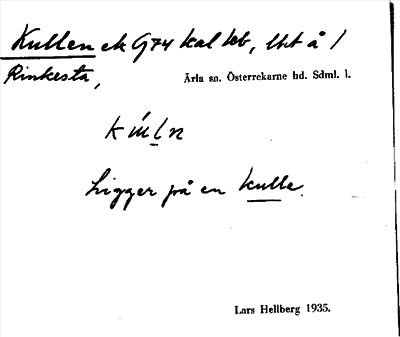 Kullen ek G74 kal kb, tht å /
Rinkesta,
Ärla sn. Österrekarne hd. Sdml. l.
Ligger på en kulle.
Lars Hellberg 1935.